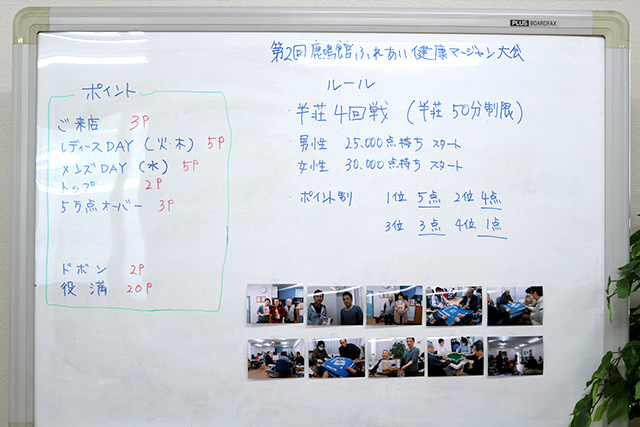 PLUS BOARDFAX
第2回 鹿鳴館ふれあい健康マージャン大会
ポイント
ご来店 3P
レディースDAY (火・木) 5P
メンズDAY (水) 5P
トップ 2P
5万点オーバー 3P
ドボン 2P
役満 20P
ルール
・半荘4回戦 (半荘50分制限)
男性 25,000点持ち スタート
女性 30,000点持ち スタート
・ポイント制 1位 5点 2位 4点
3位 3点 4位 1点